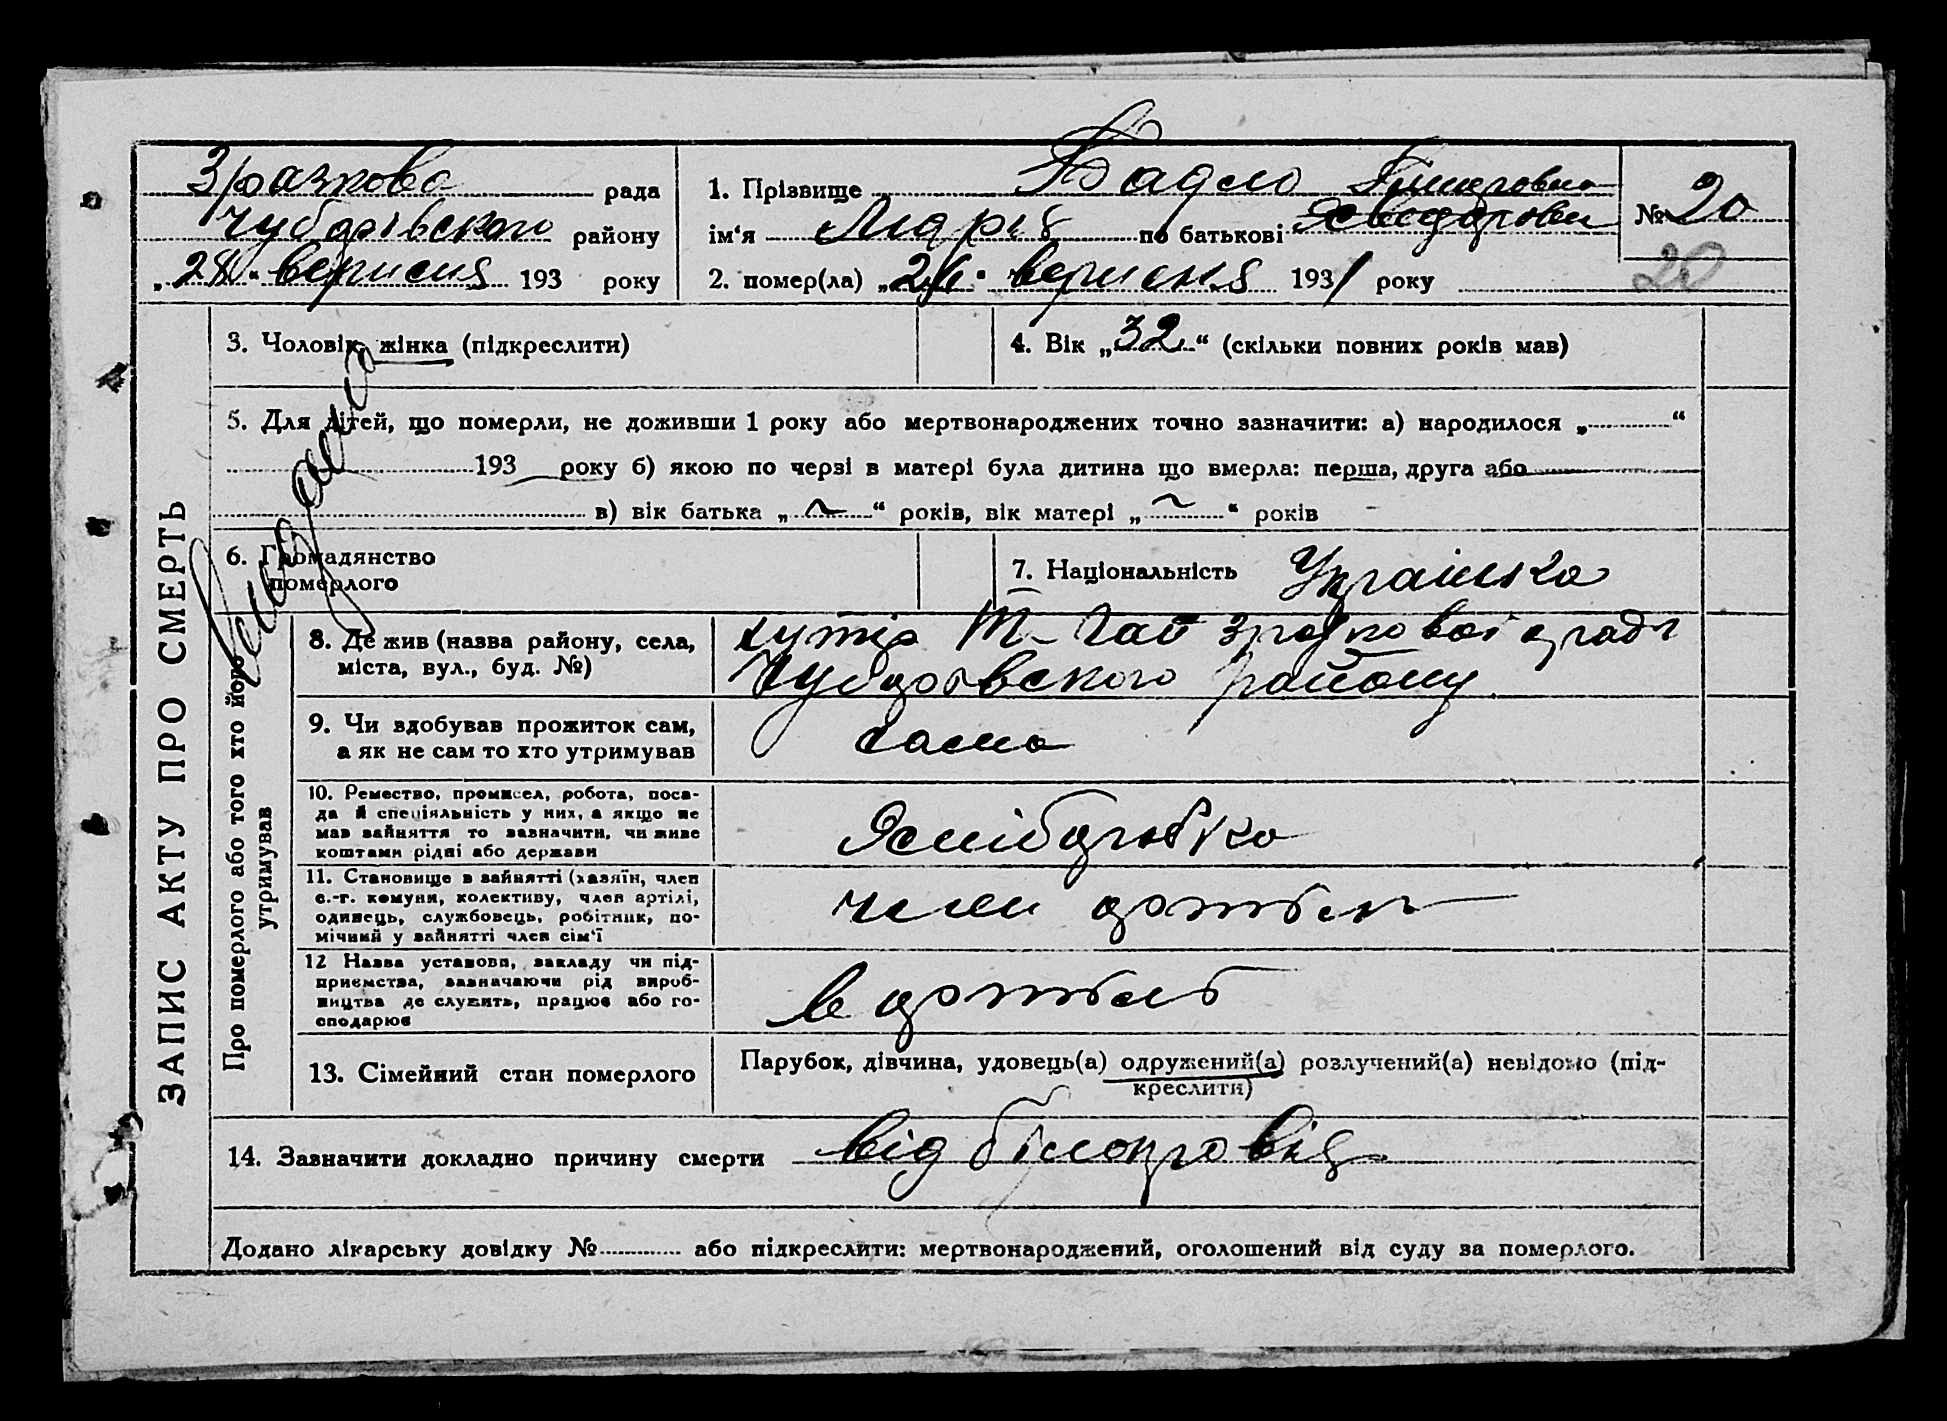 Зразкова рада
Чубарівського району
„28“ вересня 193 року
1. Прізвище Бадло
ім‘я Марія по батькові
2. помер(ла) „26“ вересня 1931 року
№ 20
20
ЗАПИС АКТУ ПРО СМЕРТЬ
3. Чоловік, жінка (підкреслити)
4. Вік „32“ (скільки повних років мав)
5. Для дітей, що померли, не доживши 1 року або мертвонароджених точно зазначити: а) народилося „ “
193 року б) якою по черзі в матері була дитина що вмерла: перша, друга або
в) вік батька „ “ років, вік матері „ “ років
6. Громадянство
померлого
7. Національність Українка
Про померлого або того хто його
утримував
8. Де жив (назва району, села,
міста, вул., буд. №)
хутір Гай Зразкової ради
Чубарівського району
9. Чи здобував прожиток сам,
а як не сам то хто утримував
сама
10. Ремество, промисел, робота, поса-
да й спеціяльність у них, а якщо не
мав зайняття то зазначити, чи живе
коштами рідні або держави
Хліборобка
11. Становище в зайнятті (хазяїн, член
с.-г. комуни, колективу, член артілі,
одинець, службовець, робітник, по-
мічний у зайнятті член сім‘ї
член артілі
12 Назва установи, закладу чи під-
приємства, зазначаючи рід вироб-
ництва де служить, працює або го-
сподарює
в артілі
13. Сімейний стан померлого
Парубок, дівчина, удовець(а) одружений(а) розлучений(а) невідомо (під-
креслити)
14. Зазначити докладно причину смерти від білокровія
Додано лікарську довідку № або підкреслити: мертвонароджений, оголошений від суду за померлого.